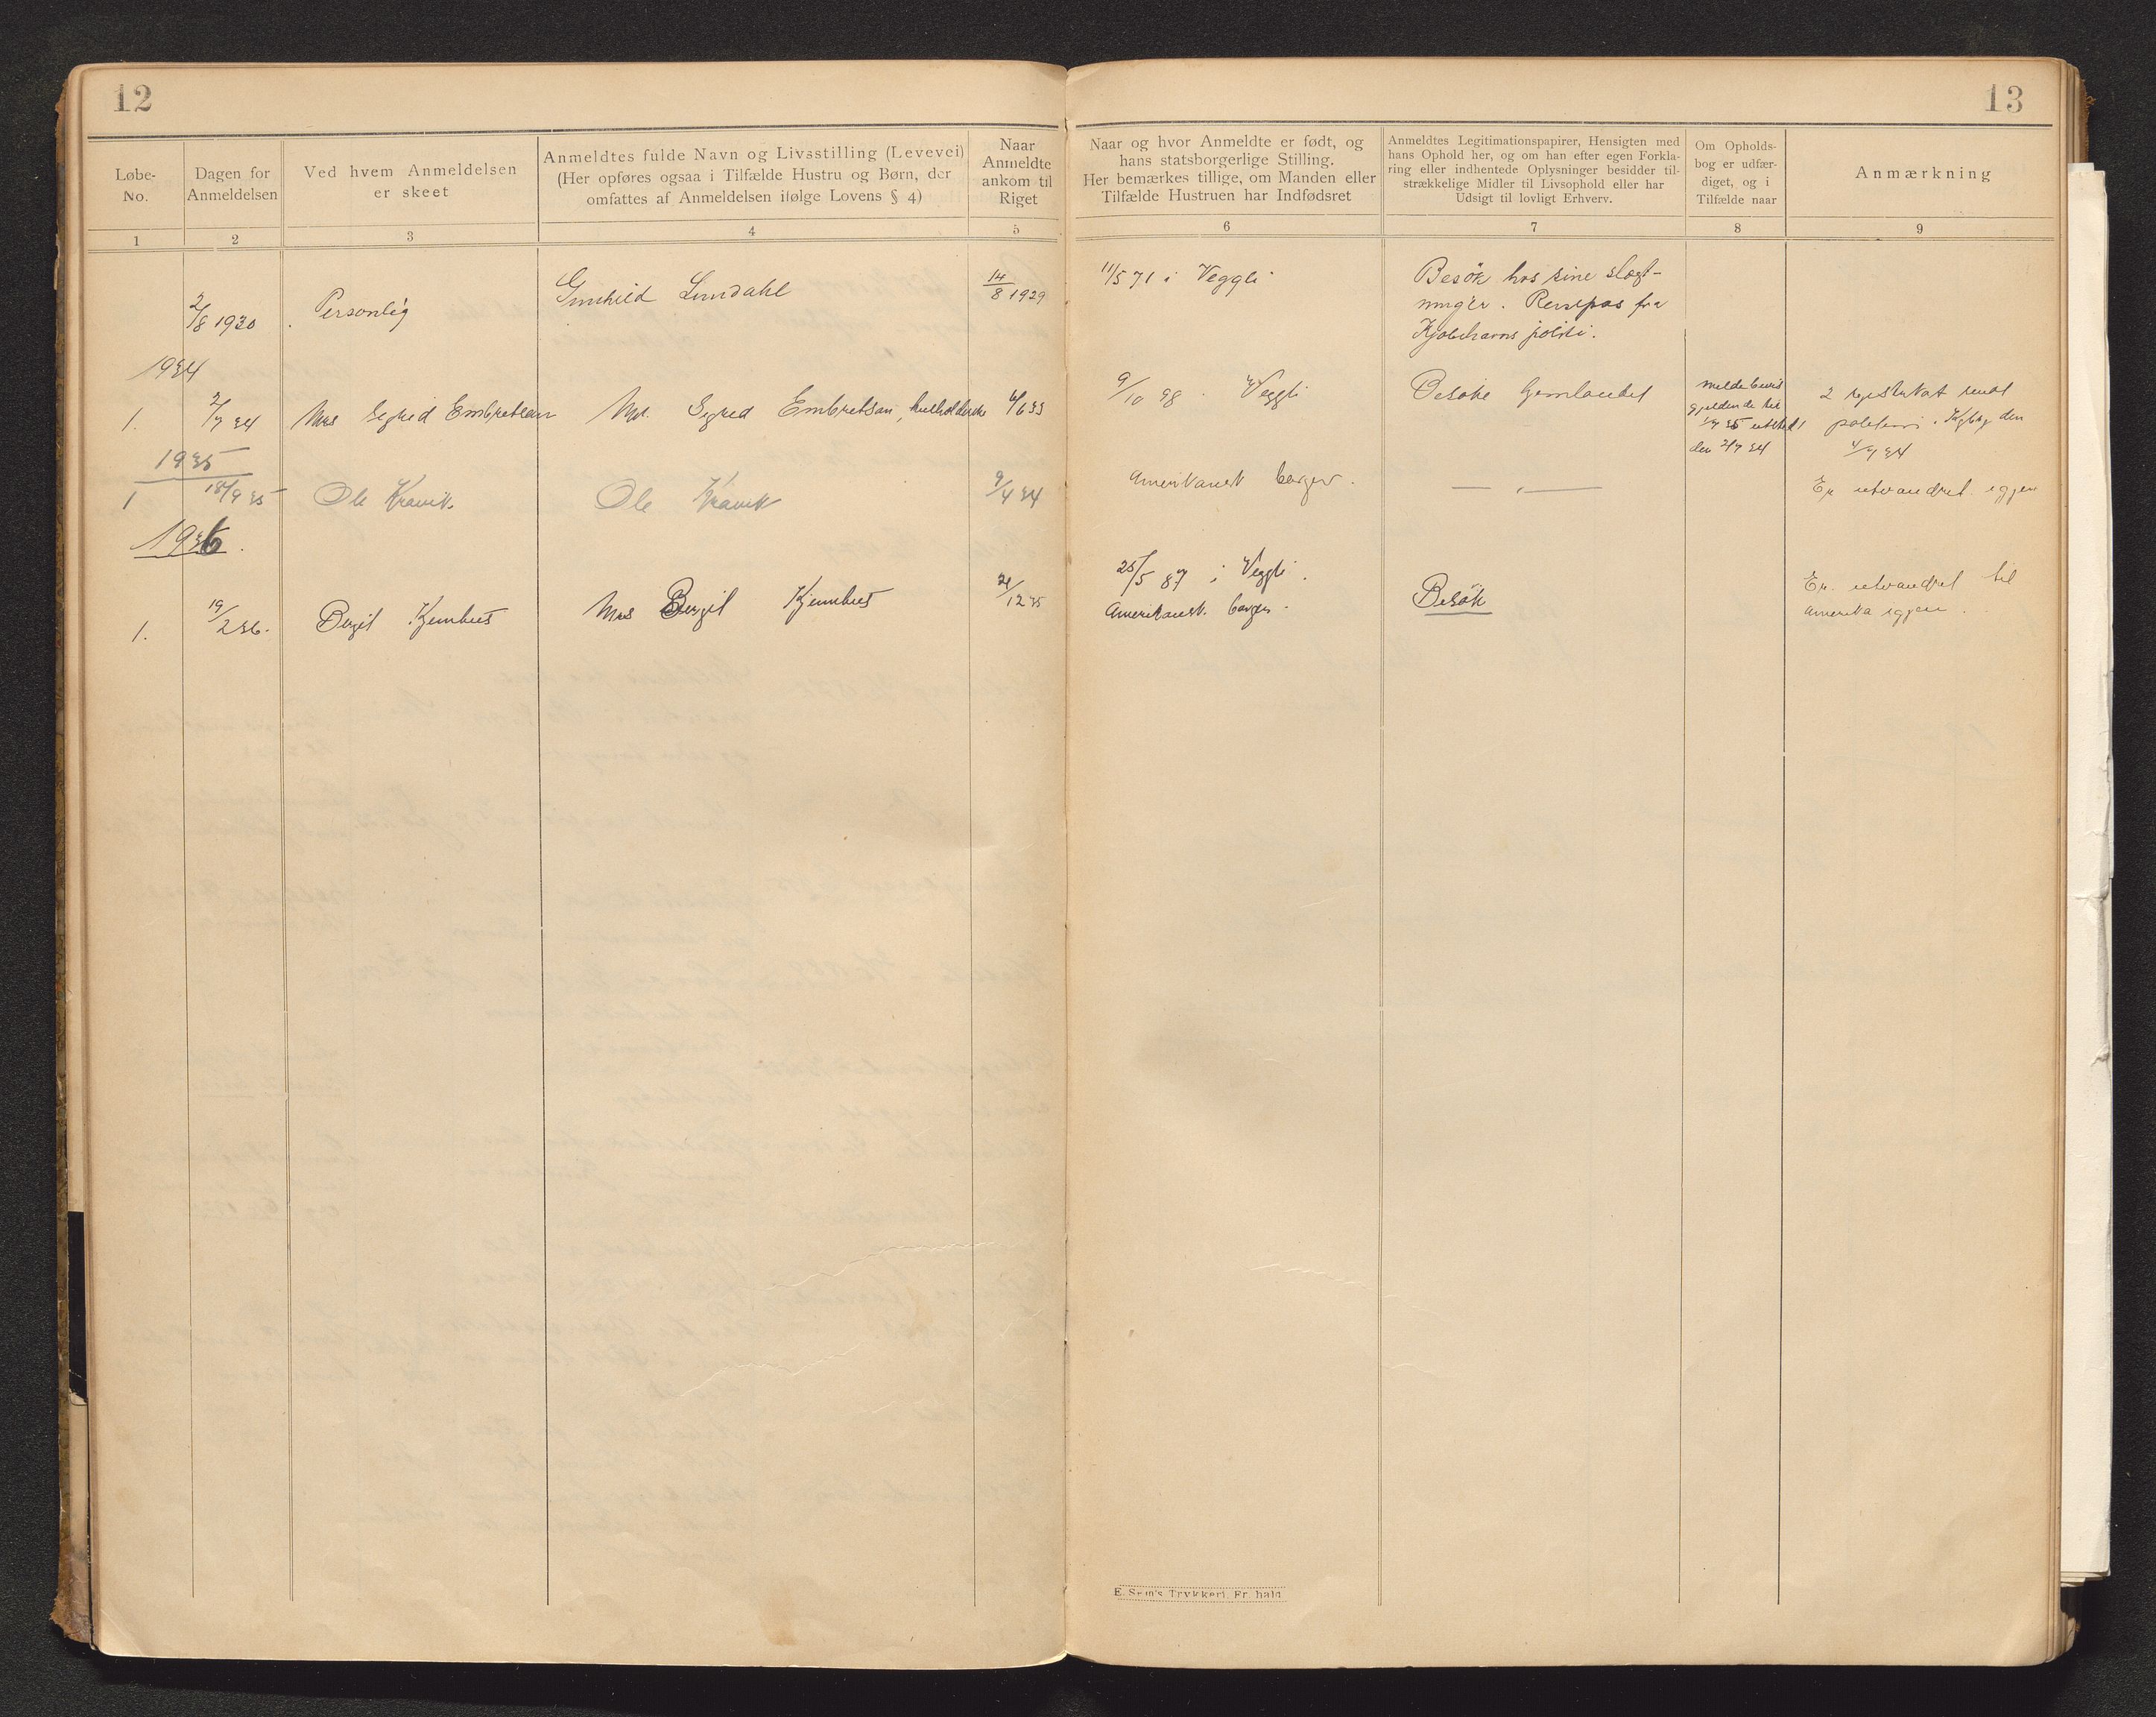 12
13
Løbe-
No.
Dagen for
Anmeldelsen
Ved hvem Anmeldelsen
er skeet
Anmeldtes fulde Navn og Livsstilling (Levevei)
(Her opføres ogsaa i Tilfælde Hustru og Børn, der
omfattes af Anmeldelsen ifølge Lovens § 4)
Naar
Anmeldte
ankom til
Riget
Naar og hvor Anmeldte er født, og
hans statsborgerlige Stilling.
Her bemærkes tillige, om Manden eller
Tilfælde Hustruen har Indfødsret
Anmeldtes Legitimationspapirer, Hensigten med
hans Ophold her, og om han efter egen Forkla-
ring eller indhentede Oplysninger besidder til-
strækkelige Midler til Livsophold eller har
Udsigt til lovligt Erhverv.
Om Opholds-
bog er udfær-
diget, og i
Tilfælde naar
Anmærkning
1 2 3 4 5 6 7 8 9
2/8 1930 Personlig Gunhild Lundahl 14/8 1929 11/5 71 i Veggli Besök hos sine slægt-
ninger. Reisepas fra
Kjøbehavns politi.
1934
1. 2/7 34 Mrs Sigrid Embretsen Mrs. Sigrid Embretsen, husholderske 4/6 33 9/10 98. Veggli Besøke hjemlandet meldebevis
gjeldende til
1/7 35 utstedt
den 2/7 34
2 registrert
politiet i Kgbg den
4/7 34
1935
1 18/9 35 Ole Kravik. Ole Kravik 9/4 34 Amerikansk borger. — " — Er utvandret igjen
1936.
1. 19/2 36. Bergit Kjemhus Mrs Bergit Kjemhus 21/12 35 25/5 87 i Veggli.
Amerikansk borger.
Besök
Er utvandret til
Amerika igjen.
E. Sem's Trykkeri, Fr.hald